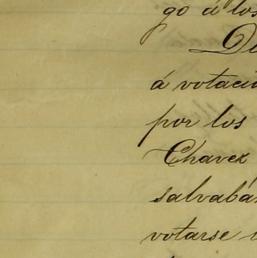 go á los
De
á votació
por los
Chavez
salvabá
votarse